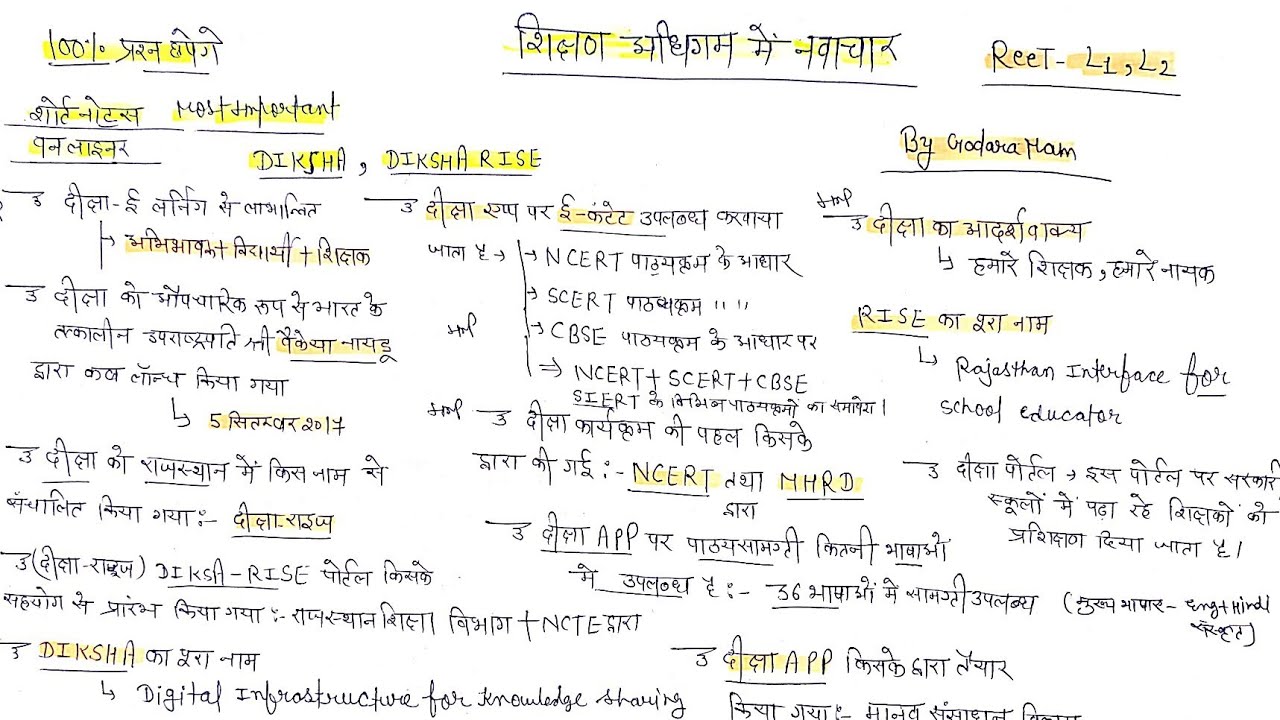 100% प्रश्न छपेगे
शिक्षण अधिगम में नवाचार
Reet - L1, L2
शोर्ट नोट्स Most important
वन लाइनर
By Godara Ham
DIKSHA, DIKSHA RISE
→ दीक्षा - ई लर्निंग से लाभान्वित
↳ अभिभावक + विद्यार्थी + शिक्षक
→ दीक्षा को औपचारिक रूप से भारत के
तत्कालीन उपराष्ट्रपति श्री वैकेया नायडू
द्वारा कब लॉन्च किया गया
↳ 5 सितम्बर 2017
→ दीक्षा को राजस्थान में किस नाम से
संचालित किया गया :- दीक्षा-राइज
→ (दीक्षा-राइज) DIKSA-RISE पोर्टल किसके
सहयोग से प्रारंभ किया गया :- राजस्थान शिक्षा विभाग + NCTE द्वारा
→ DIKSHA का पूरा नाम
↳ Digital Infrostructure for Knowledge sharing
→ दीक्षा एप्प पर ई-कंटेट उपलब्ध करवाया
जाता है → → NCERT पाठ्यक्रम के आधार
→ SCERT पाठ्यक्रम " "
Imp → CBSE पाठ्यक्रम के आधार पर
⇒ NCERT + SCERT + CBSE
SIERT के विभिन्न पाठ्यक्रमों का समावेश।
Imp → दीक्षा कार्यक्रम की पहल किसके
द्वारा की गई :- NCERT तथा MHRD
द्वारा
→ दीक्षा APP पर पाठ्यसामग्री कितनी भाषाओं
मे उपलब्ध है :- 36 भाषाओं में सामग्री उपलब्ध (मुख्य भाषाए - Eng + Hindi
संस्कृत)
→ दीक्षा APP किसके द्वारा तैयार
किया गया :- मानव संसाधन विकास
Imp
→ दीक्षा का आदर्श वाक्य
↳ हमारे शिक्षक, हमारे नायक
RISE का पूरा नाम
↳ Rajasthan Interface for
School educator
→ दीक्षा पोर्टल → इस पोर्टल पर सरकारी
स्कूलों में पढ़ा रहे शिक्षकों को
प्रशिक्षण दिया जाता है।